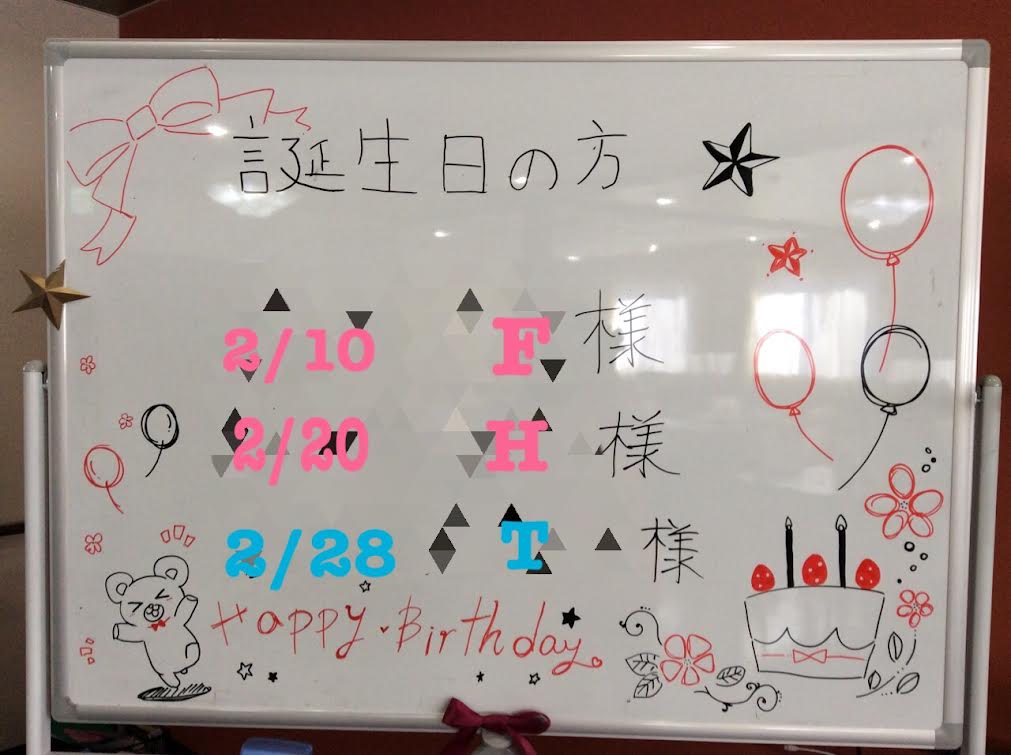 誕生日の方
2/10 F様
2/20 H様
2/28 T様
Happy・Birthday